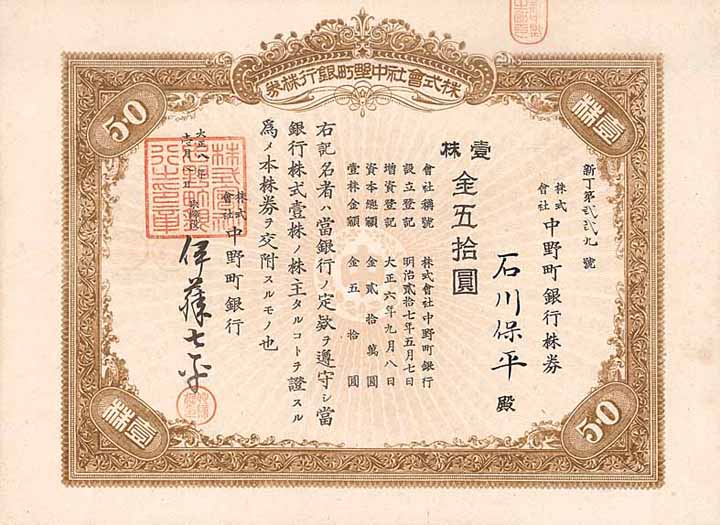 株式會社中埜町銀行株券
50
壹株
壹株
50
新丁第貳貳九號
株式會社中野町銀行株券
石川保平殿
壹株
金五拾圓
會社稱號 株式會社中野町銀行
設立登記 明治貳拾七年五月七日
增資登記 大正六年九月八日
資本總額 金貳拾萬圓
壹株金額 金五拾圓
右記名者ハ當銀行ノ定款ヲ遵守シ當
銀行株式壹株ノ株主タルコトヲ證スル
爲メ本株券ヲ交附スルモノ也
大正八年
株式會社中野町銀行
取締役
伊藤七平